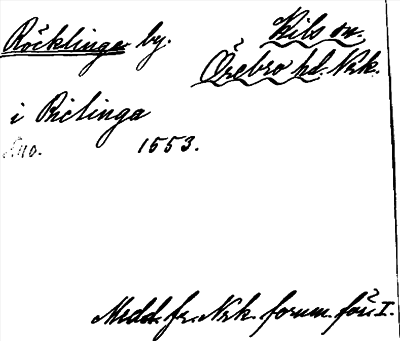 Röcklinge by.
Kils sn.
Örebro hd. Nrk.
i Riclinga
Ano. 1553.
Medd. fr. Nrk. fornm. för. I.